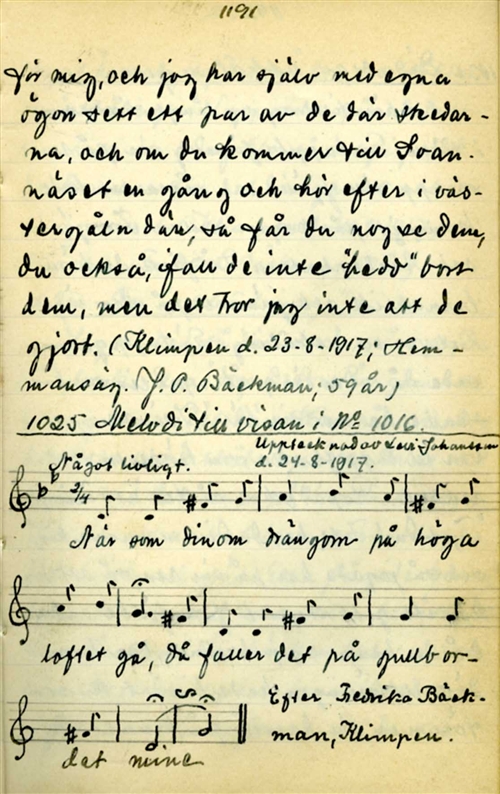 1191
för mig, och jag har själv med egna
ögon sett ett par av de där skedar-
na, och om du kommer till Svan-
näset en gång och hör efter i väs-
tergåln där, så får du nog se dem,
du också, ifall de inte "hedd" bort
dem, men det tror jag inte att de
gjort. (Klimpen d. 23-8-1917; Hem-
mansäg. J. P. Bäckman; 59 år)
1025 Melodi till visan i No 1016.
Upptecknad av Levi Johansson
Något livligt. d. 24-8-1917.
2/4
När som dinom drängom på höga
loftet gå, då faller det på gullbor-
Efter Fredrika Bäck-
man, Klimpen.
det mine